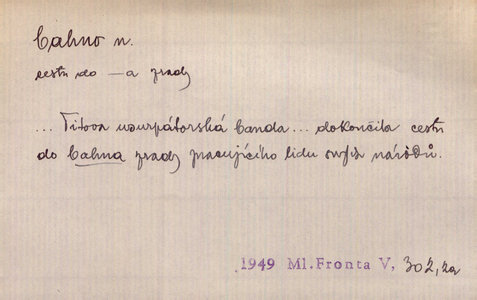 bahno n.
cestu do —a zrady
... Titova usurpátorská banda... dokončila cestu
do bahna zrady pracujícího lidu svých národů.
1949 Ml. Fronta V, 302, 2a